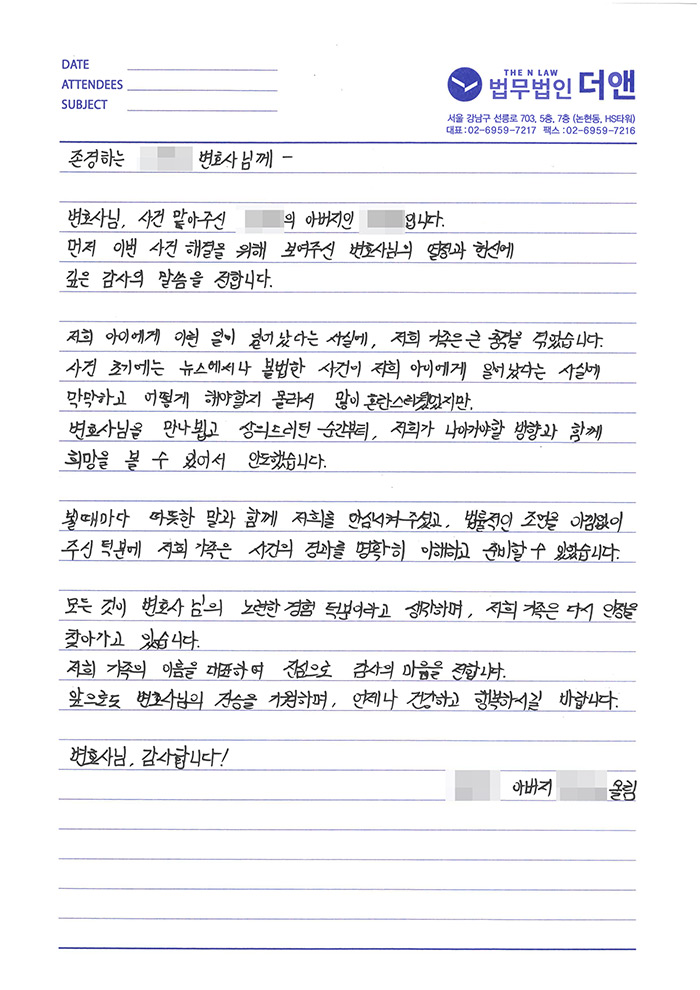 DATE
ATTENDEES
SUBJECT
THE N LAW
법무법인 더앤
서울 강남구 선릉로 703, 5층, 7층 (논현동, HS타워)
대표:02-6959-7217 팩스:02-6959-7216
존경하는 변호사님께 -
변호사님, 사건 맡아주신 의 아버지인 입니다.
먼저 이번 사건 해결을 위해 보여주신 변호사님의 열정과 헌신에
깊은 감사의 말씀을 전합니다.
저희 아이에게 이런 일이 일어났다는 사실에, 저희 가족은 큰 충격을 겪었습니다.
사건 초기에는 뉴스에서나 볼법한 사건이 저희 아이에게 일어났다는 사실에
막막하고 어떻게 해야할지 몰라서 많이 혼란스러웠었지만,
변호사님을 만나뵙고 상의드리던 순간부터, 저희가 나아가야할 방향과 함께
희망을 볼 수 있어서 안도했습니다.
뵐때마다 따뜻한 말과 함께 저희를 안심시켜주셨고, 법률적인 조언을 아낌없이
주신 덕분에 저희 가족은 사건의 경과를 명확히 이해하고 준비할 수 있었습니다.
모든 것이 변호사님의 노련한 경험 덕분이라고 생각하며, 저희 가족은 다시 안정을
찾아가고 있습니다.
저희 가족의 마음을 대표하여 진심으로 감사의 마음을 전합니다.
앞으로도 변호사님의 건승을 기원하며, 언제나 건강하고 행복하시길 바랍니다.
변호사님, 감사합니다!
아버지 올림